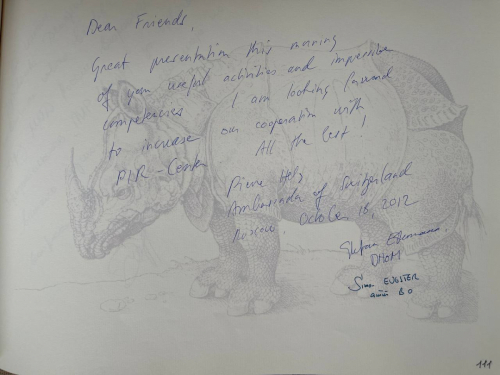 Dear Friends,
Great presentation this morning
of your useful activities and impressive
competencies I am looking forward
to increase our cooperation with
PIR-Center All the best!
Pierre Helg
Ambassador of Switzerland
Moscow, October 18, 2012
Stefan
DHOM
Simon EUGSTER